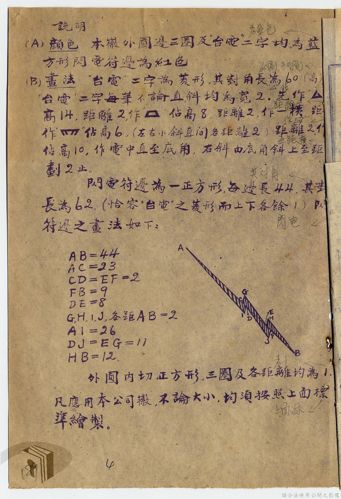 說明
(A) 顏色 本徽外圍邊三圈及台電二字均為藍
方形閃電符邊為紅色
(B) 畫法 "台電"二字為菱形,其對角長為60(高
"台電"二字每筆不論直斜均為寬2,先作
高14,距離2,作 佔高8,距離2,作一橫,距
作 佔高6,(左右小斜直间各距離2),距離2,作
佔高10,作電中直至底角,右斜由底角斜上至距
劃2止.
閃電符邊為一正方形,每邊長44,其
長為62,(恰容"台電"之菱形而上下各餘1)
符邊之畫法如下:
AB=44
AC=23
CD=EF=2
FB=9
DE=8
G.H.I.J.各距AB=2
AI=26
DJ=EG=11
HB=12
A
G
B
外圈内切正方形,三圈及各距離均為1.
凡應用本公司徽,不論大小,均須按照上面標
準繪製.
4